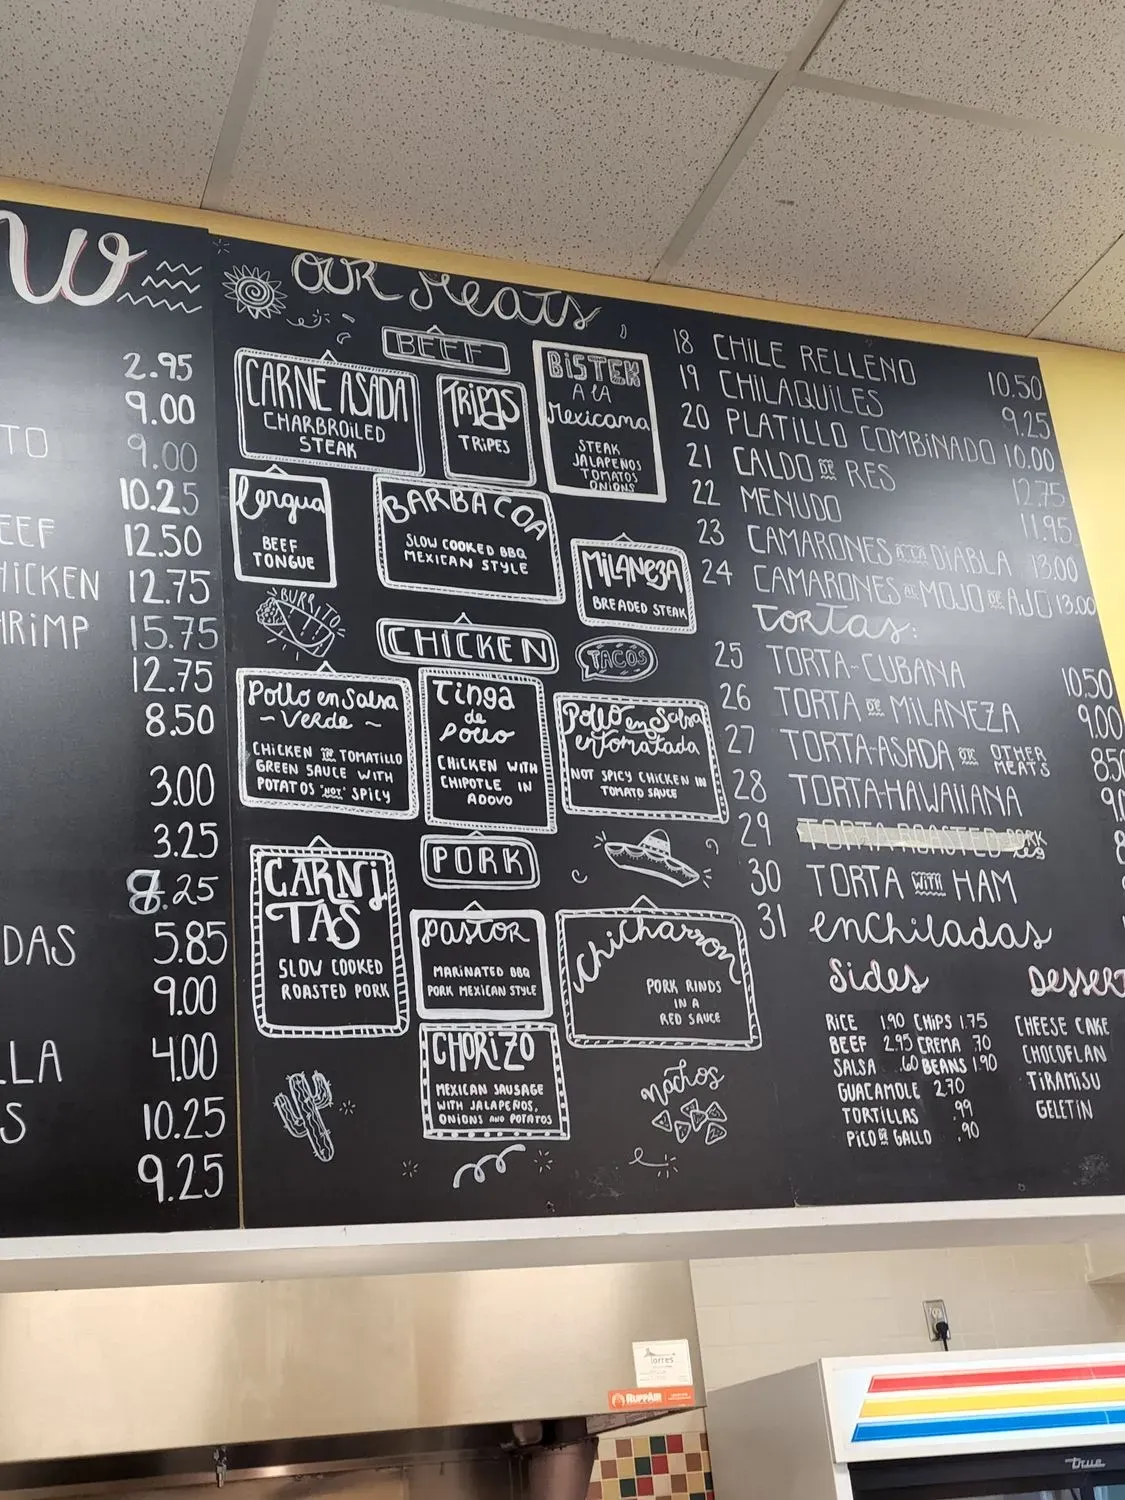 w
2.95
9.00
TO 9.00
10.25
EEF 12.50
HICKEN 12.75
HRIMP 15.75
12.75
8.50
3.00
3.25
8.25
DAS 5.85
9.00
LLA 4.00
S 10.25
9.25
OUR Meats
BEEF
CARNE ASADA
CHARBROILED
STEAK
TRIPAS
TRIPES
BISTEK
A LA
Mexicana
STEAK
JALAPEÑOS
TOMATOS
ONIONS
lengua
BEEF
TONGUE
BARBACOA
SLOW COOKED BBQ
MEXICAN STYLE
MILANEZA
BREADED STEAK
BURRITO
CHICKEN
TACOS
Pollo en Salsa
~ Verde ~
CHICKEN IN TOMATILLO
GREEN SAUCE WITH
POTATOS "NOT" SPICY
Tinga
de
Pollo
CHICKEN WITH
CHIPOTLE IN
ADOVO
Pollo en Salsa
entomatada
NOT SPICY CHICKEN IN
TOMATO SAUCE
PORK
CARNI
TAS
SLOW COOKED
ROASTED PORK
Pastor
MARINATED BBQ
PORK MEXICAN STYLE
Chicharron
PORK RINDS
IN A
RED SAUCE
CHORIZO
MEXICAN SAUSAGE
WITH JALAPEÑOS,
ONIONS AND POTATOS
nachos
18 CHILE RELLENO 10.50
19 CHILAQUILES 9.25
20 PLATILLO COMBINADO 10.00
21 CALDO DE RES 12.75
22 MENUDO 11.95
23 CAMARONES A LA DIABLA 13.00
24 CAMARONES AL MOJO DE AJO 13.00
tortas:
25 TORTA-CUBANA 10.50
26 TORTA DE MILANEZA 9.00
27 TORTA-ASADA OR OTHER MEATS 8.50
28 TORTA-HAWAIIANA 9.0
29 TORTA-ROASTED PORK LEG 8
30 TORTA WITH HAM
31 enchiladas
Sides
RICE 1.90 CHIPS 1.75
BEEF 2.95 CREMA .70
SALSA .60 BEANS 1.90
GUACAMOLE 2.70
TORTILLAS .99
PICO DE GALLO .90
Dessert
CHEESE CAKE
CHOCOFLAN
TIRAMISU
GELETIN
Torres
RUPPAIR
True